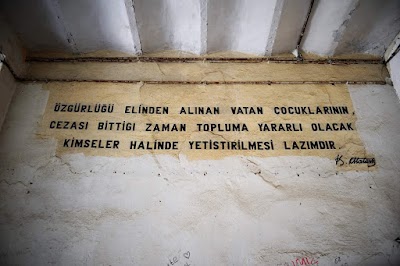 ÖZGÜRLÜĞÜ ELİNDEN ALINAN VATAN ÇOCUKLARININ
CEZASI BİTTİĞİ ZAMAN TOPLUMA YARARLI OLACAK
KİMSELER HALİNDE YETİŞTİRİLMESİ LAZIMDIR.
K. Atatürk